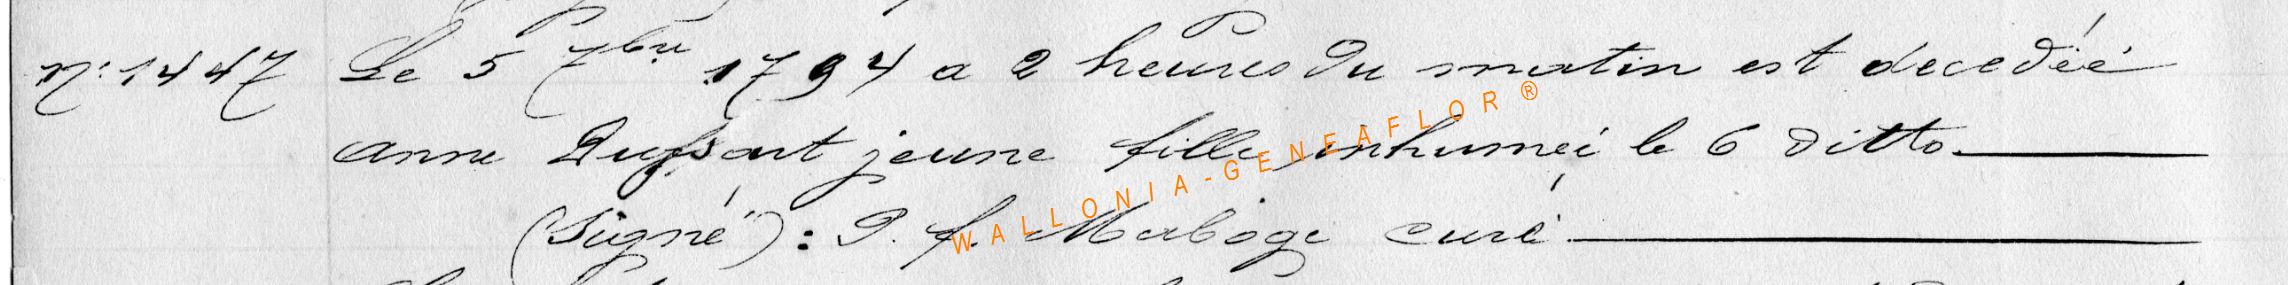 N: 1447 Le 5 7bre 1794 a 2 heures du matin est decedéé
anne jeune fille inhumeé le 6 ditto.
(Signé) : P. f. Maboge curé
WALLONIA-GENEAFLOR®